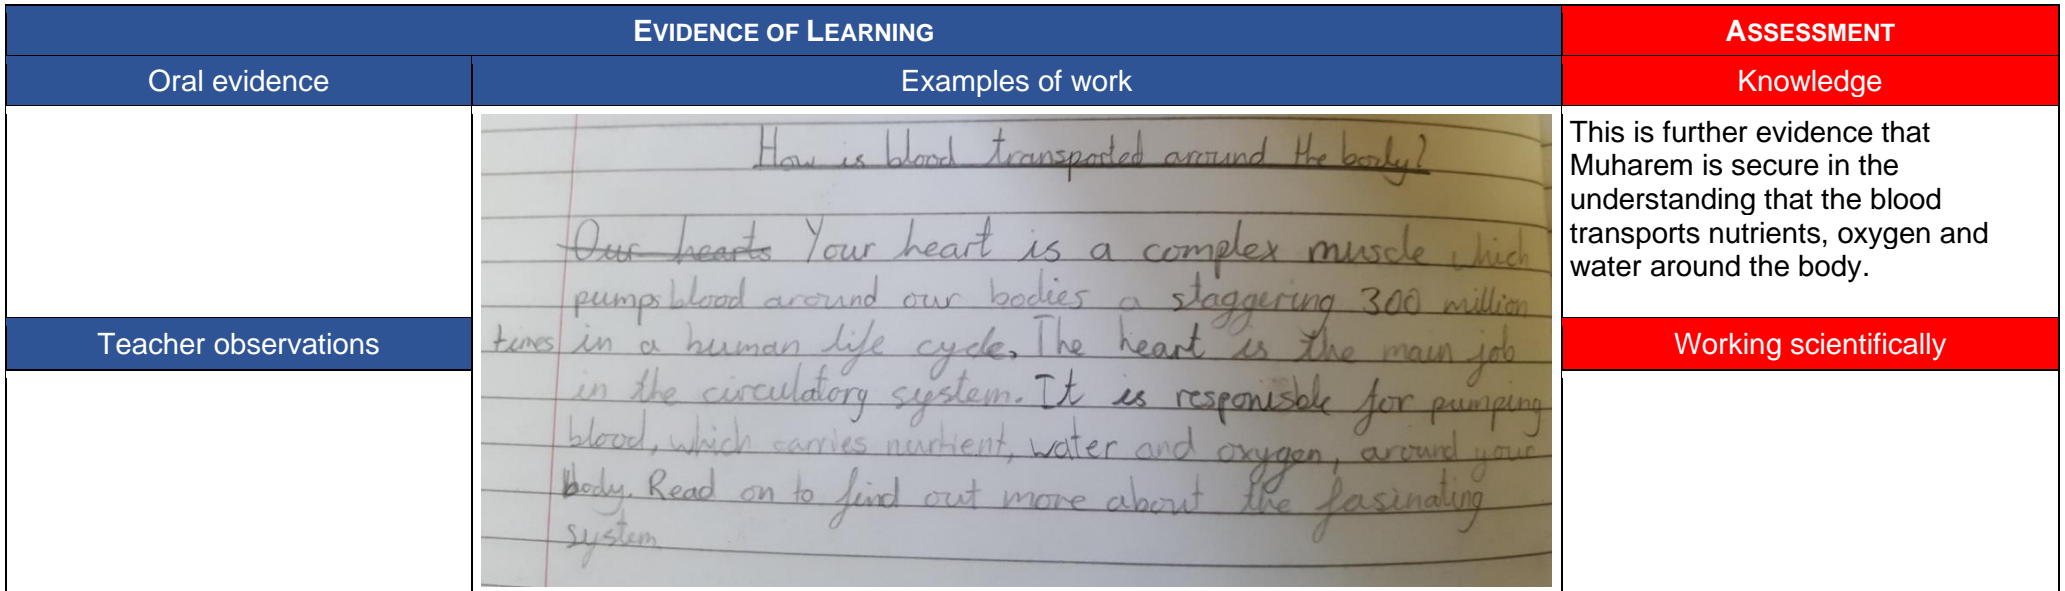 EVIDENCE OF LEARNING
ASSESSMENT
Oral evidence
Examples of work
Knowledge
How is blood transported around the body?
Our hearts Your heart is a complex muscle which
pumps blood around our bodies a staggering 300 million
times in a human life cycle. The heart is the main job
in the circulatory system. It is responisble for pumping
blood, which carries nurtient, water and oxygen, around your
body. Read on to find out more about the fasinating
system
This is further evidence that
Muharem is secure in the
understanding that the blood
transports nutrients, oxygen and
water around the body.
Teacher observations
Working scientifically